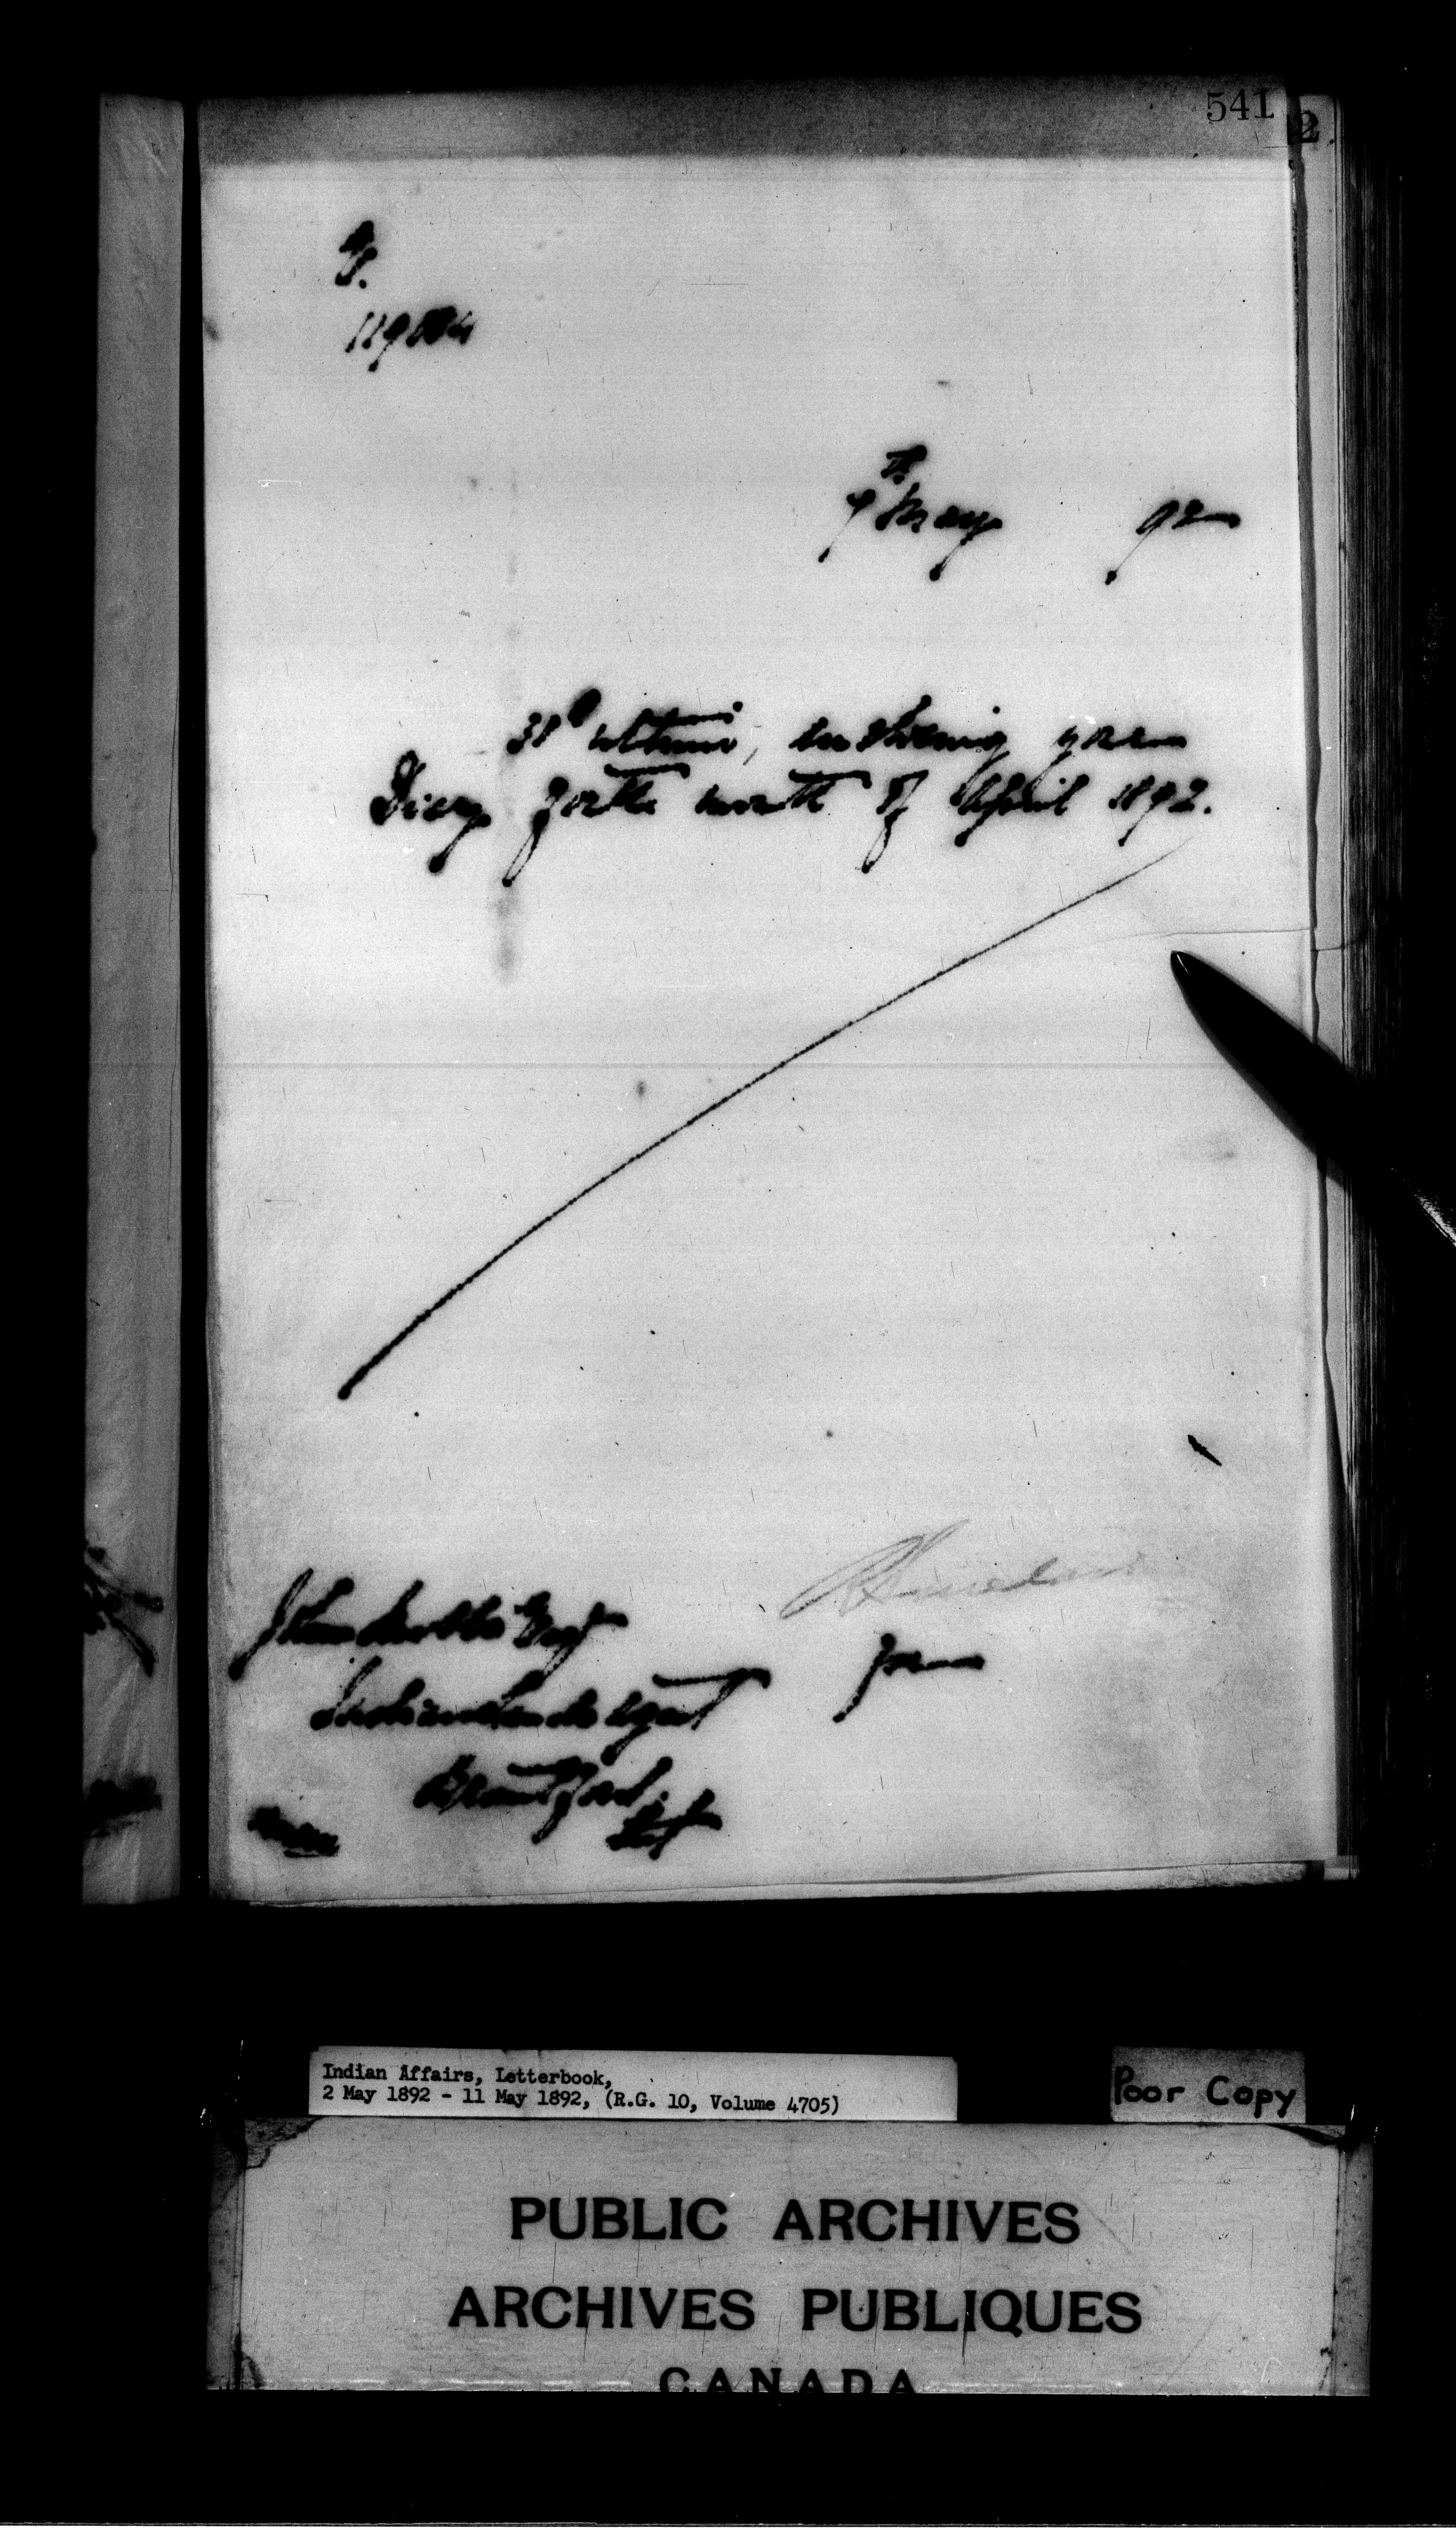 541
2
119
th
May 92
30th ultimo, enclosing your
Diary for the month of April 1892.
for
Indian Lands Agent
Brantford.
Ont
Indian Affairs, Letterbook,
2 May 1892 - 11 May 1892, (R.G. 10, Volume 4705)
Poor Copy
PUBLIC ARCHIVES
ARCHIVES PUBLIQUES
CANADA